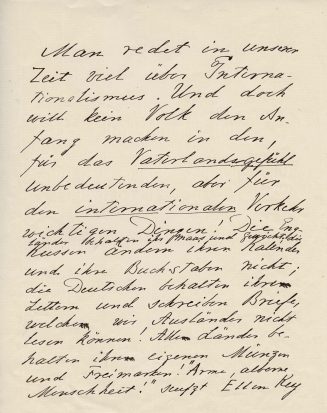 Man redet in unserer
Zeit viel über Interna-
tionalismus. Und doch
will kein Volk den An-
fang machen in den,
für das Vaterlandsgefühl
unbedeutenden, aber für
den internationalen Verkehr
wichtigen Dingen. Die Eng-
länder behalten ihr Maas und Gewicht, die
Russen ändern ihren Kalender
und ihre Buchstaben nicht;
die Deutschen behalten ihre
Lettern und schreiben Briefe,
welche wir, Ausländer nicht
lesen können. Alle Länder be-
halten ihre eigenen Münzen
und Freimarken! "Arme, alberne
Menschheit!" seufzt Ellen Key